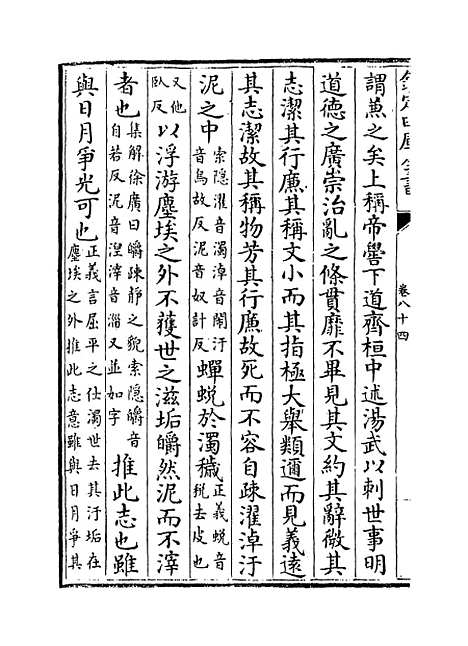 欽定四庫全書
卷八十四
謂兼之矣上稱帝嚳下道齊桓中述湯武以刺世事明
道德之廣崇治亂之條貫靡不畢見其文約其辭微其
志潔其行廉其稱文小而其指極大舉類邇而見義遠
其志潔故其稱物芳其行廉故死而不容自疎濯淖汙
泥之中索隱濯音濁淖音閙汙音烏故反泥音奴計反蟬蛻於濁穢正義蛻音稅去皮也
又他臥反以浮游塵埃之外不獲世之滋垢皭然泥而不滓
者也集解徐廣曰皭疎靜之貌索隱皭音自若反泥音涅滓音淄又並如字推此志也雖
與日月爭光可也正義言屈平之仕濁世去其汙垢在塵埃之外推此志意雖與日月爭其